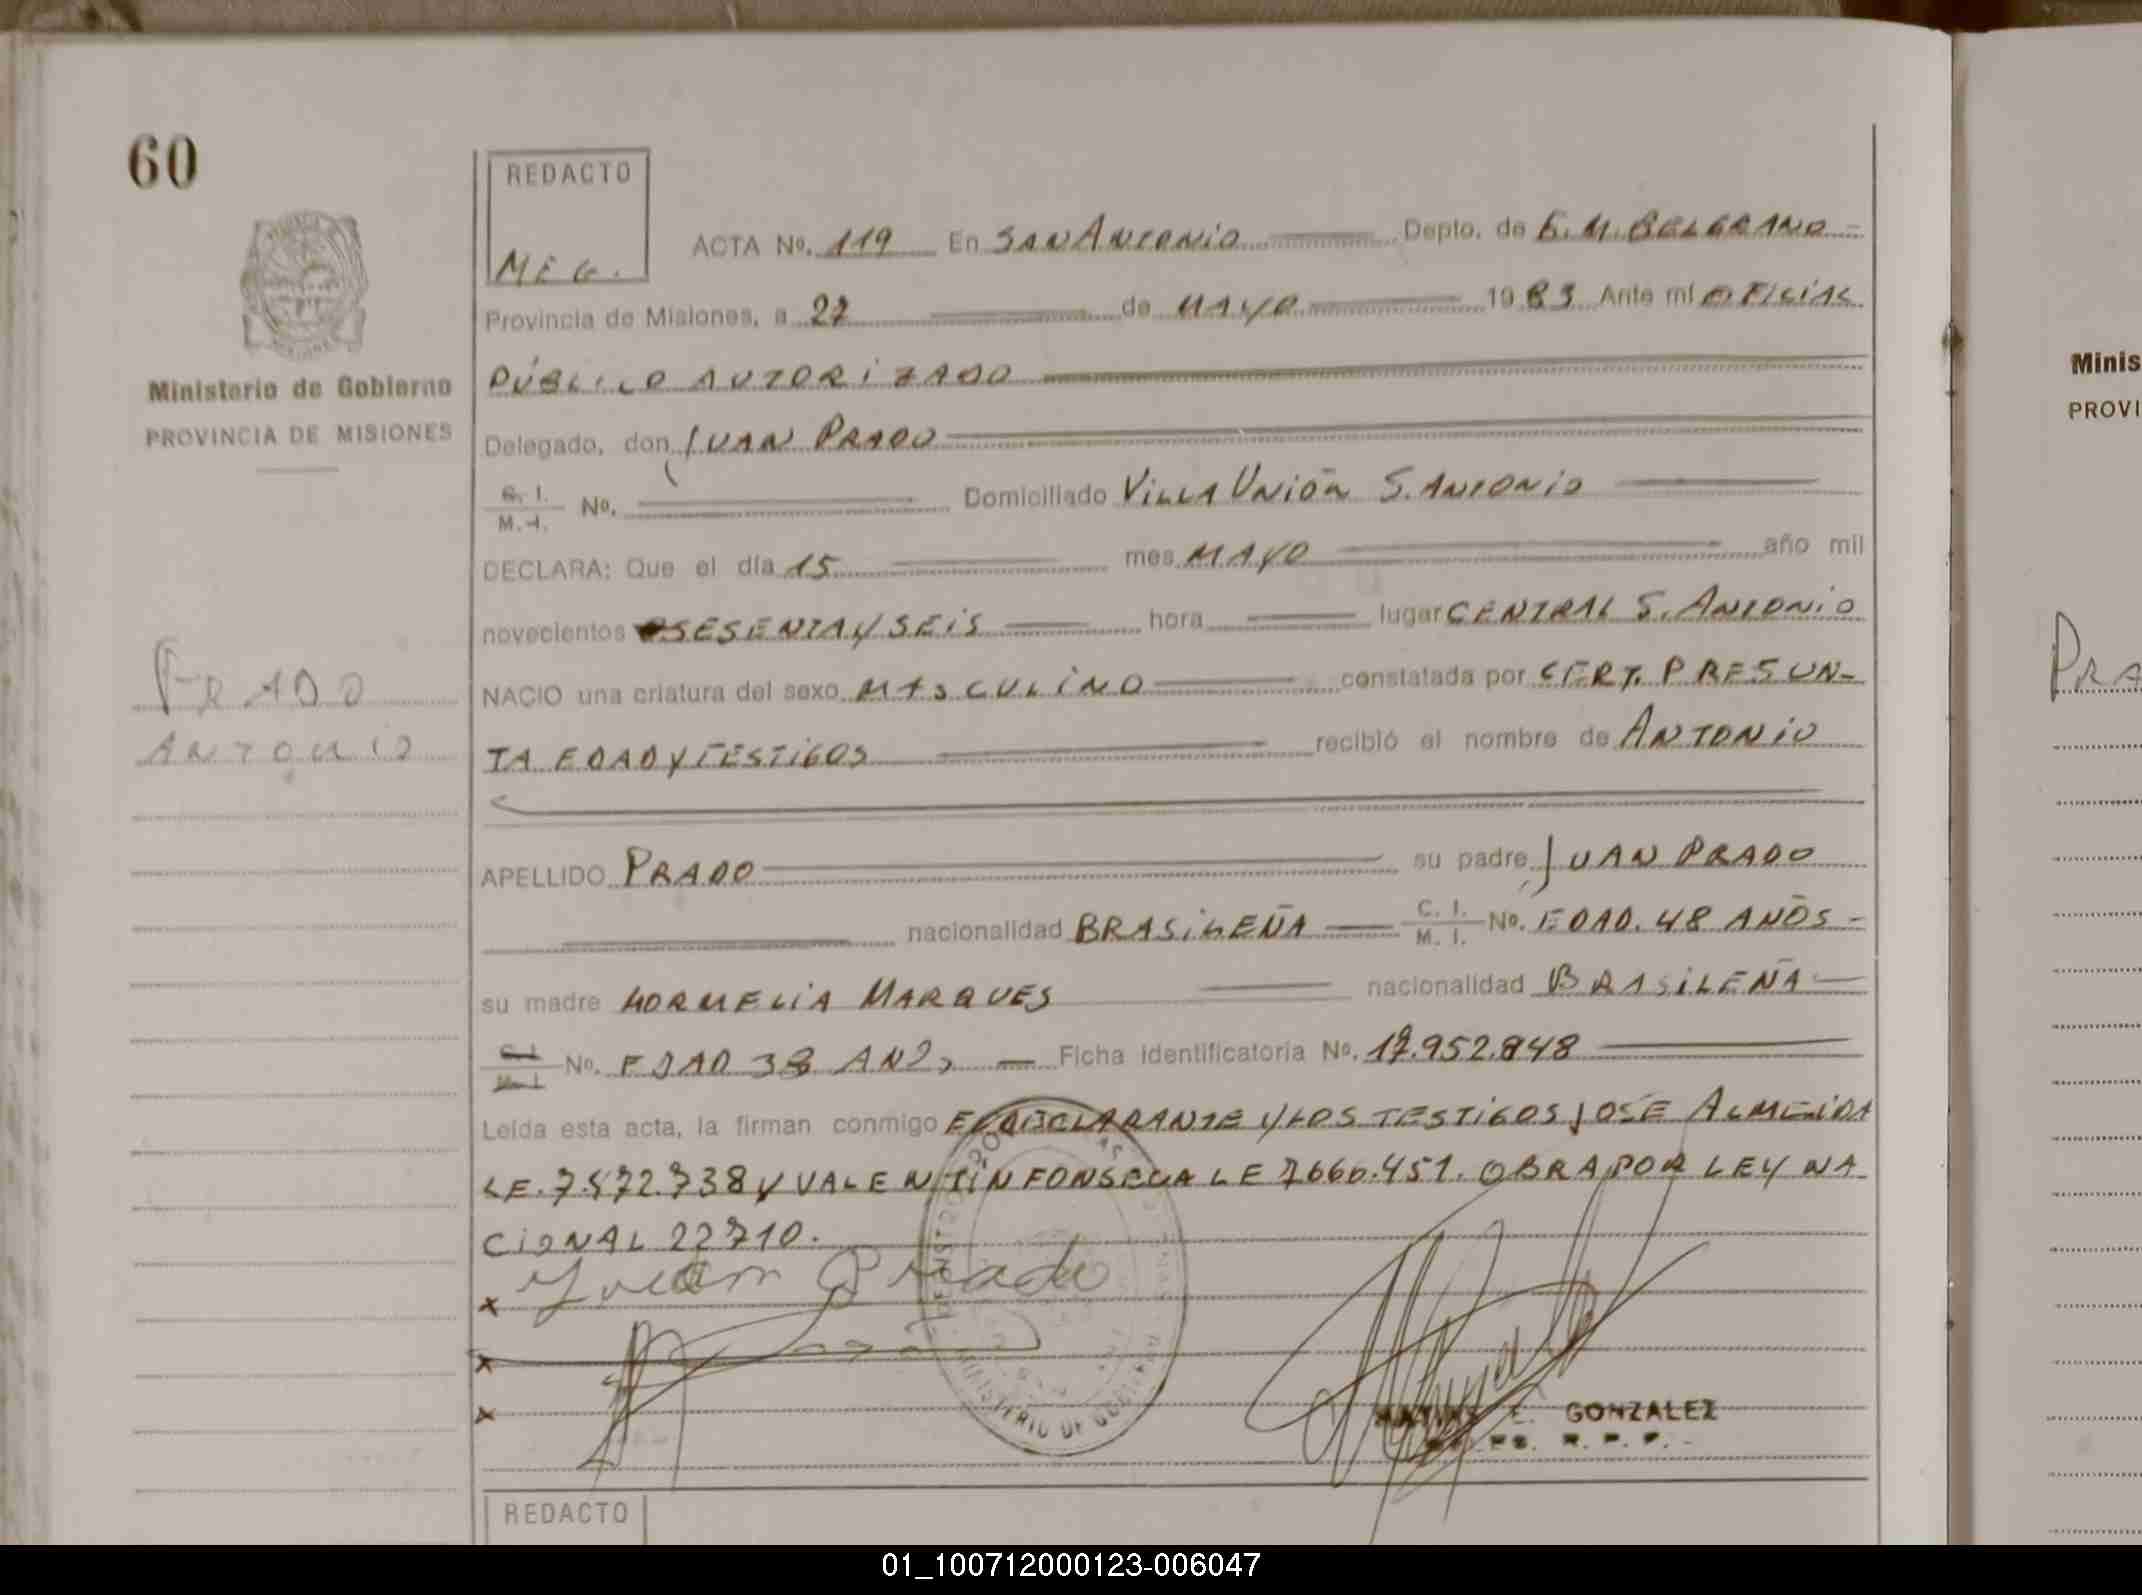 60
REDACTO
MEG.
ACTA Nº. 119 En SAN ANTONIO Depto. de G. M. BELGRANO
Provincia de Misiones, a 27 de MAYO 1983 Ante mí OFICIAL
PÚBLICO AUTORIZADO
Ministerio de Gobierno
PROVINCIA DE MISIONES
Delegado, don JUAN PRADO
C. I. / M. I. Nº. Domiciliado VILLA UNIÓN S. ANTONIO
DECLARA: Que el día 15 mes MAYO año mil
novecientos SESENTA Y SEIS hora lugar CENTRAL S. ANTONIO
PRADO
ANTONIO
NACIO una criatura del sexo MASCULINO constatada por CERT. PRESUN-
TA EDAD Y TESTIGOS recibió el nombre de ANTONIO
APELLIDO PRADO su padre JUAN PRADO
nacionalidad BRASILEÑA C. I. / M. I. Nº. EDAD. 48 AÑOS -
su madre HORMELIA MARQUES nacionalidad BRASILEÑA
C. I. / M. I. Nº. EDAD 38 Ficha identificatoria Nº. 17.952.848
Leída esta acta, la firman conmigo EL DECLARANTE Y LOS TESTIGOS JOSE ALMEIDA
LE. 7.572.738 Y VALENTIN FONSECA LE 7660.451. OBRA POR LEY NA-
CIONAL 22710.
x Juan Prado
x
x
MINISTERIO DE GOBIERNO
GONZALEZ
REDACTO
Minis
PROVI
PRA
01_100712000123-006047